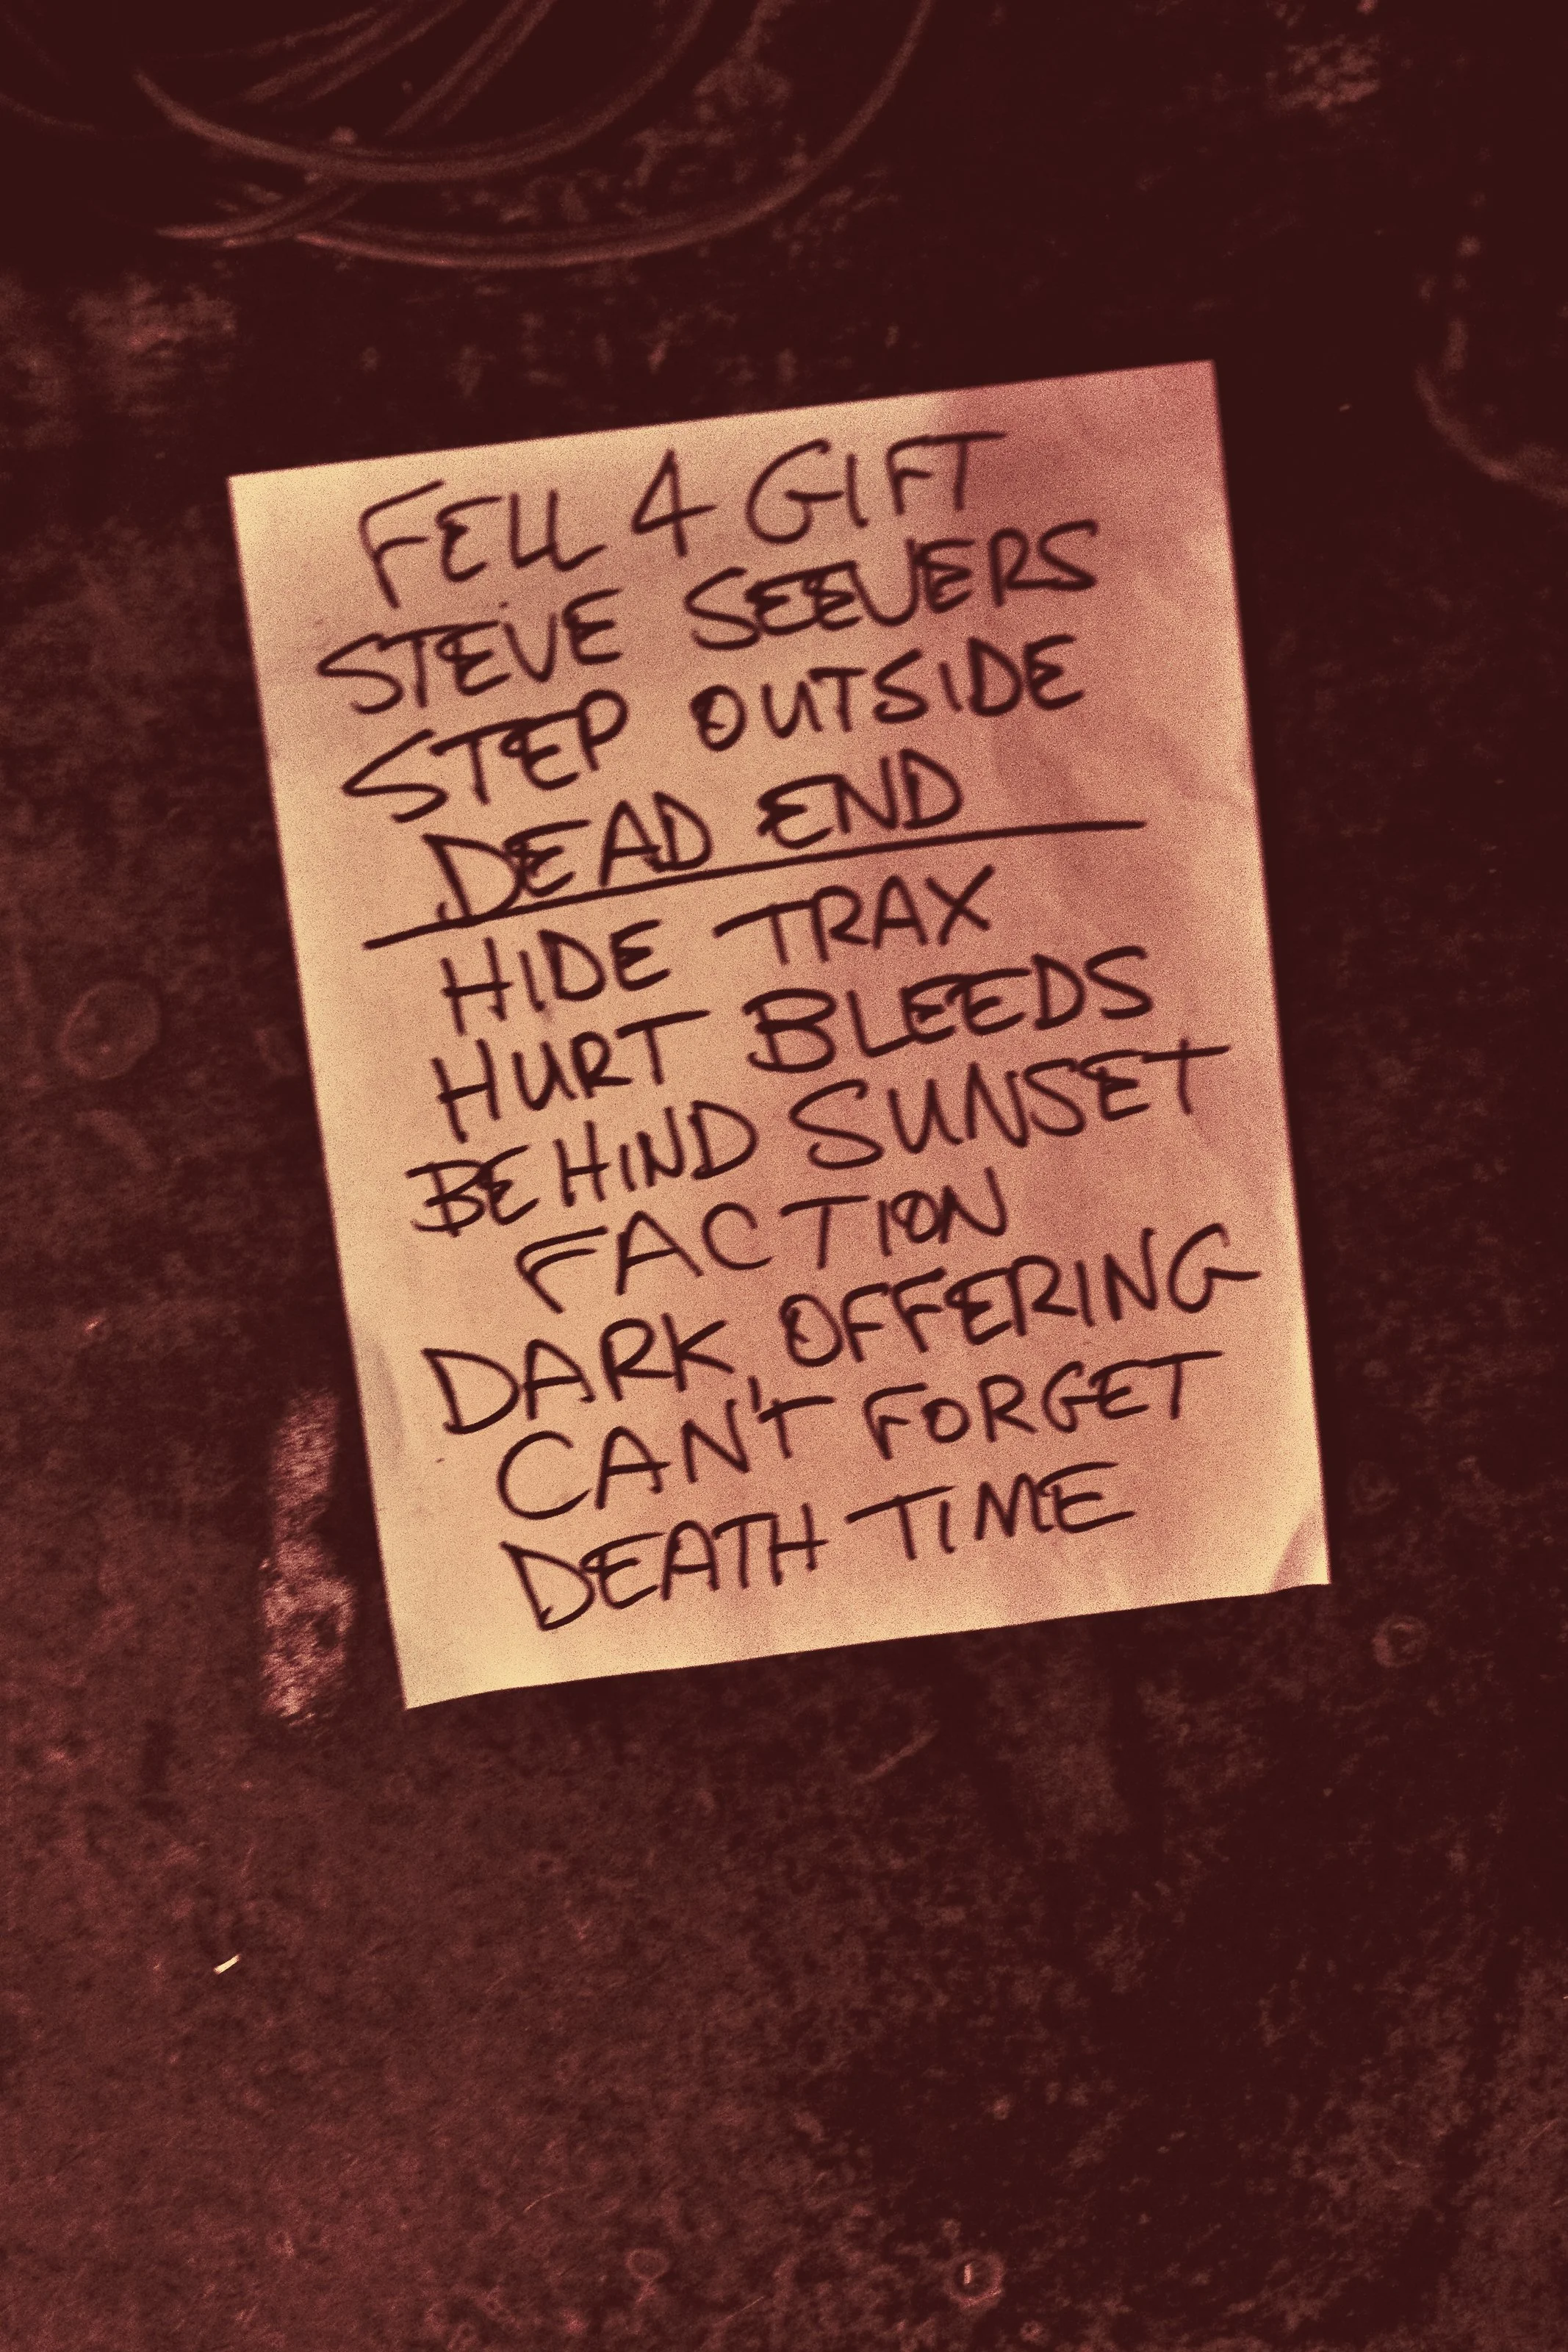 FELL 4 GIFT
STEVE SEEVERS
STEP OUTSIDE
DEAD END
HIDE TRAX
HURT BLEEDS
BEHIND SUNSET
FACTION
DARK OFFERING
CAN'T FORGET
DEATH TIME